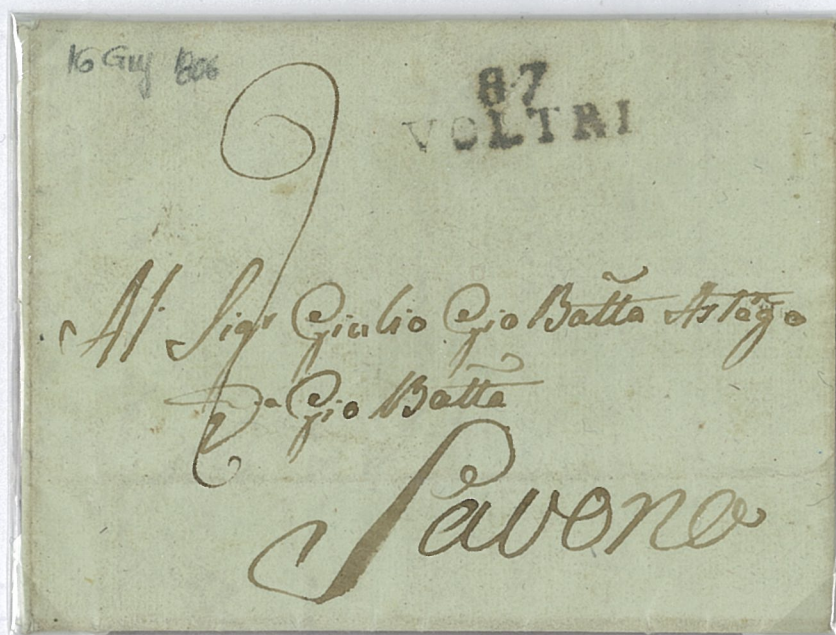 16 Giug 1806
87
VOLTRI
Al Sigr Giulio Gio Batta Astego
Gio Batta
Savona